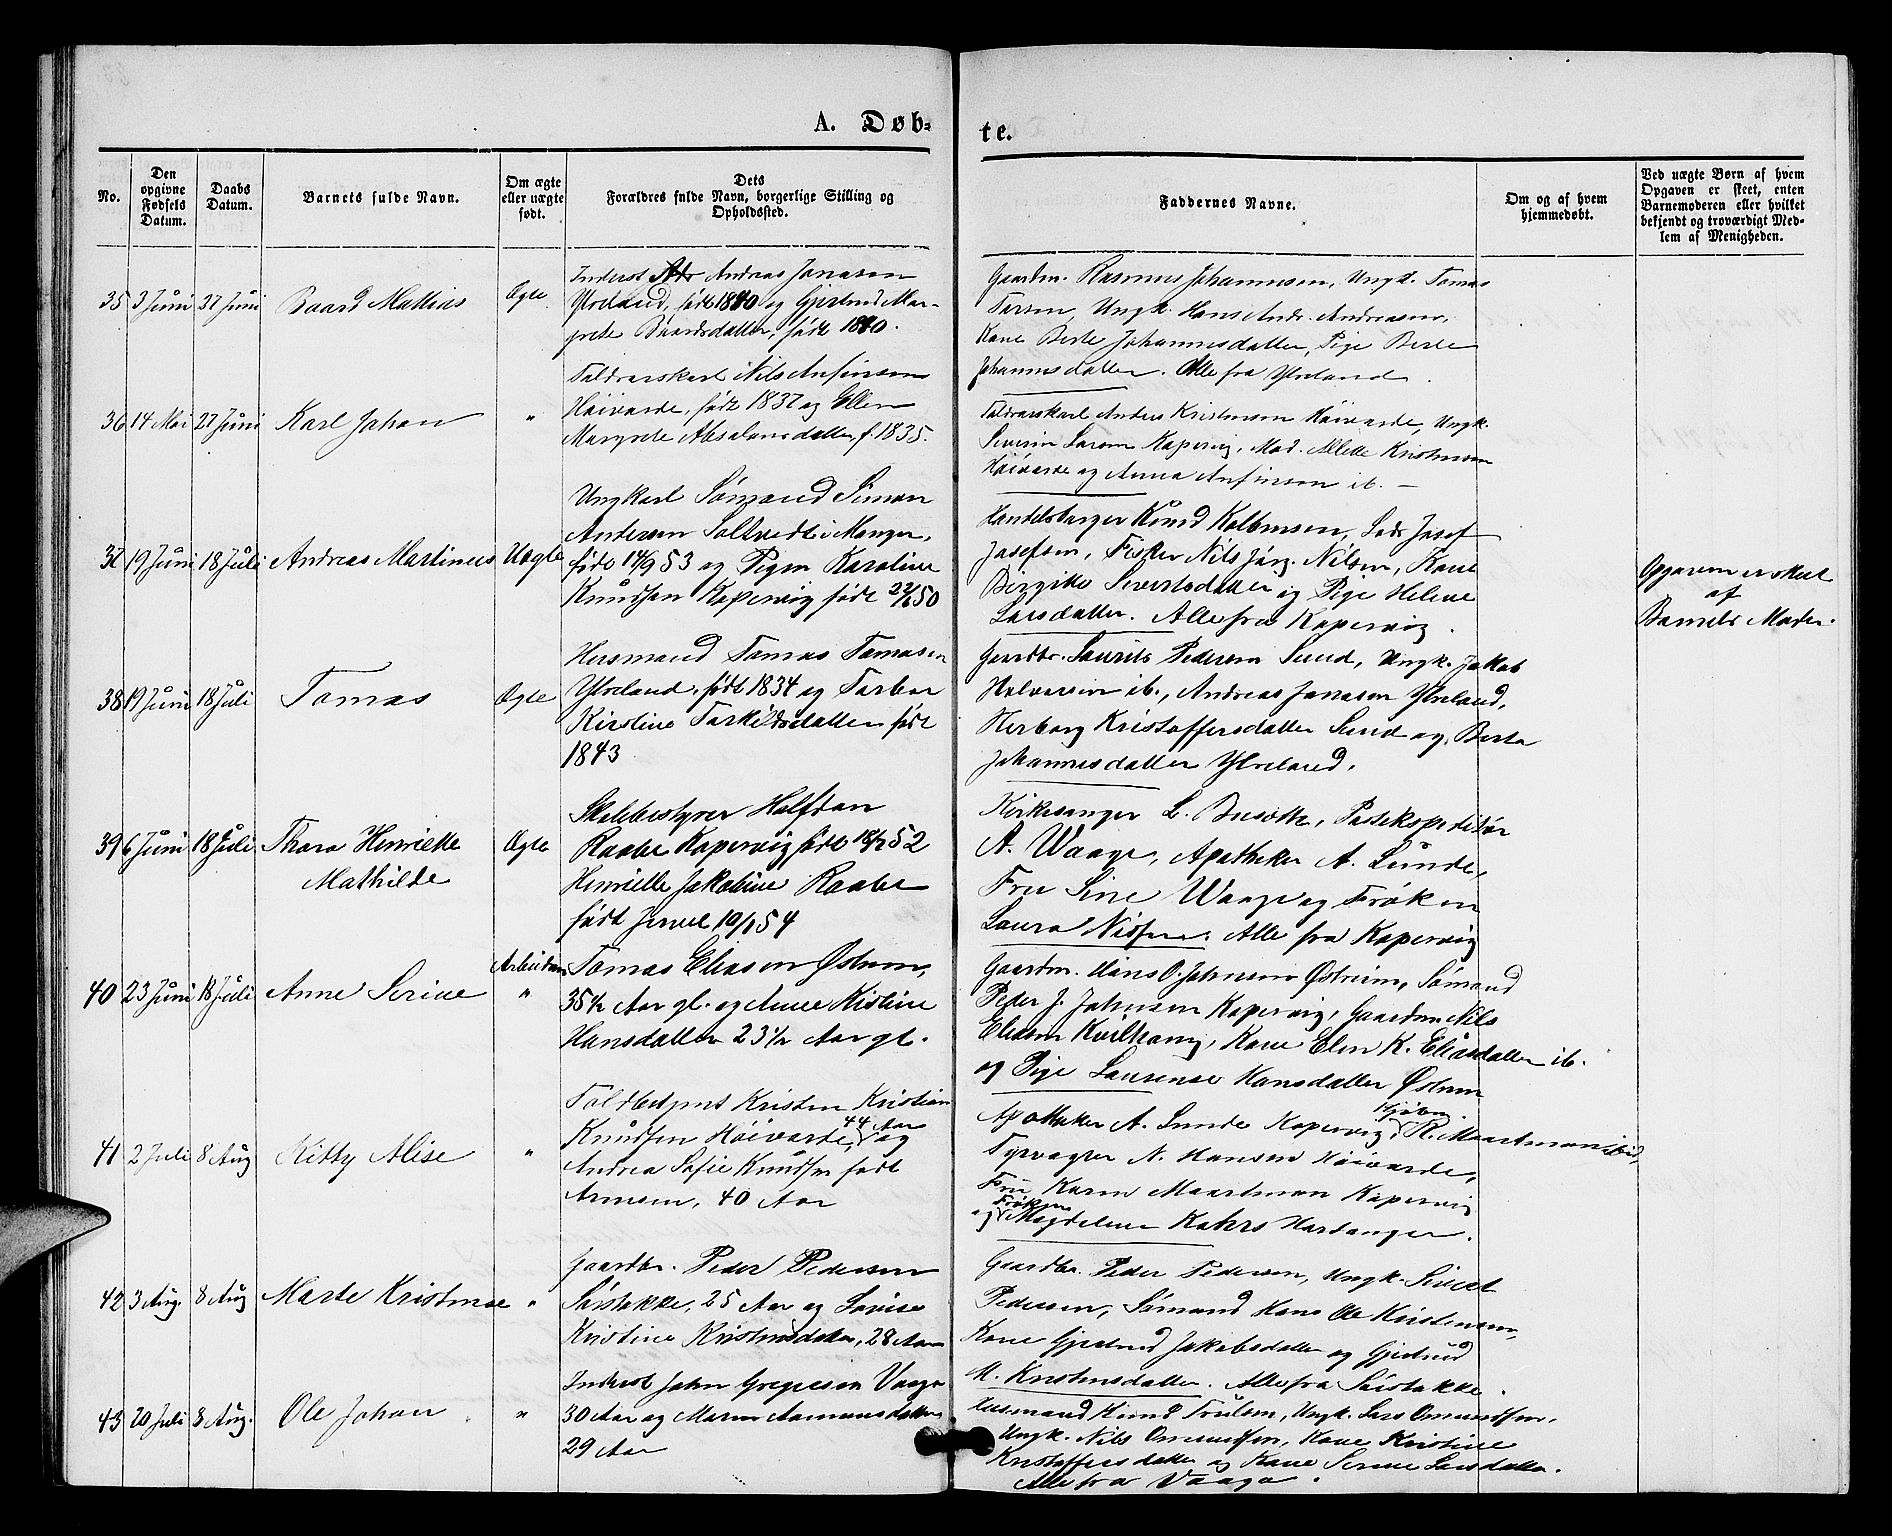 A. Døb=
te.
No.
Den opgivne Fødsels Datum.
Daabs Datum.
Barnets fulde Navn.
Om ægte eller uægte født.
Dets Forældres fulde Navn, borgerlige Stilling og Opholdssted.
Faddernes Navne.
Om og af hvem hjemmedøbt.
Ved uægte Børn af hvem Opgaven er skeet, enten Barnemoderen eller hvilket bekjendt og troværdigt Medlem af Menigheden.
35 3 Juni 27 Juni Baard Mathias Ægte
Inderst Andreas Jonassen
Ytreland, født 1840 og Gjertrud Mar-
grete Baardsdatter, født 1840.
Gaardm. Rasmus Johannesen, Ungk. Tomas
Ungk. Hans Andr. Andreasen,
Kone Berte Johannesdatter, Pige Berte
Johannesdatter. Alle fra Ytreland.
36 14 Mai 27 Juni Karl Johan "
Toldvarskarl Nils Anfinsen
Høivarde, født 1837 og Ellen
Margrete Absalonsdatter, f. 1835.
Toldvarskarl Anders Kristensen Høivarde, Ungk.
Severin Larsen Kopervig, Mad. Allette Kristensen
Høivarde og Anna Anfinsen ib. –
37 19 Juni 18 Juli Andreas Martinus Uægte
Ungkarl Sømand Simon
Andersen Saltvedt i Manger,
født 14/9 53 og Pigen Karoline
Knudsen Kopervig født 22/6 50
Handelsborger Knud Kolbensen, Josef
Josefsen, Fisker Nils Jørg. Nilsen, Kone
Birgitte Severtsdatter og Pige Helene
Larsdatter. Alle fra Kopervig.
Opgaven er skeet
af
Barnets Moder.
38 19 Juni 18 Juli Tomas Ægte
Husmand Tomas Tomasen
Ytreland, født 1834 og Torbor
Kirstine Torkildsdatter født
1843
Gaardbr. Laurits Pedersen Sund, Ungk. Jakob
Halvorsen ib., Andreas Jonasen Ytreland,
Herborg Kristoffersdatter Sund og Berta
Johannesdatter Ytreland.
39 6 Juni 18 Juli Thora Henriette
Mathilde Ægte
Skolebestyrer Halfdan
Raabe Kopervig født 18/2 52
Henriette Jakobine Raabe
født Juul 10/1 54
Kirkesanger L. Postekspeditør
A. Waage, Apotheker A. Lunde,
Fru Sine Waage og Frøken
Laura Nissen. Alle fra Kopervig
40 23 Juni 18 Juli Anne Serine "
Arbeidsm. Tomas Eliasen Østrem,
35 1/2 Aar gl. og Anne Kistine
Hansdatter 23 1/2 Aar gl.
Gaardm. Hans O. Johnsen Østreim, Sømand
Peder J. Johnsen Kopervig, Gaardm. Nils
Eliasen Kvilhaug, Kone Elen K. Eliasdatter ib.
og Pige Laurense Hansdatter Østrem
41 2 Juli 8 Aug Kitty Alise "
Toldbetjent Kristen Kristian
Knudsen Høivarde, 44 Aar og
Andrea Sofie Knudsen født
Arnesen, 40 Aar
Apotheker A. Lunde Kopervig, Kjøbm. R. Maartmann ibid,
Fyrvogter N. Hansen Høivarde,
Fru Karen Maartman Kopervig
og Frøken Magdelene Kahrs Hardanger.
42 3 Aug. 8 Aug Marte Kristense "
Gaardbr. Peder Pedersen
Sørstokke, 25 Aar og Lovise
Kristine Kristensdatter, 28 Aar
Gaardbr. Peder Pedersen, Ungk. Sivert
Pedersen, Sømand Hans Ole Kristensen,
Kone Gjertrud Jakobsdatter og Gjertrud
M. Kristensdatter. Alle fra Sørstokke.
43 20 Juli 8 Aug. Ole Johan "
Inderst John Gregersen Vaage
30 Aar og Maren Aamunsdatter
29 Aar
Husmand Knud Trulsen, Ungk. Lars Omundsen,
Ungk. Nils Omundsen, Kone Kristine
Kristoffersdatter og Kone Serine Larsdatter.
Alle fra Vaage.